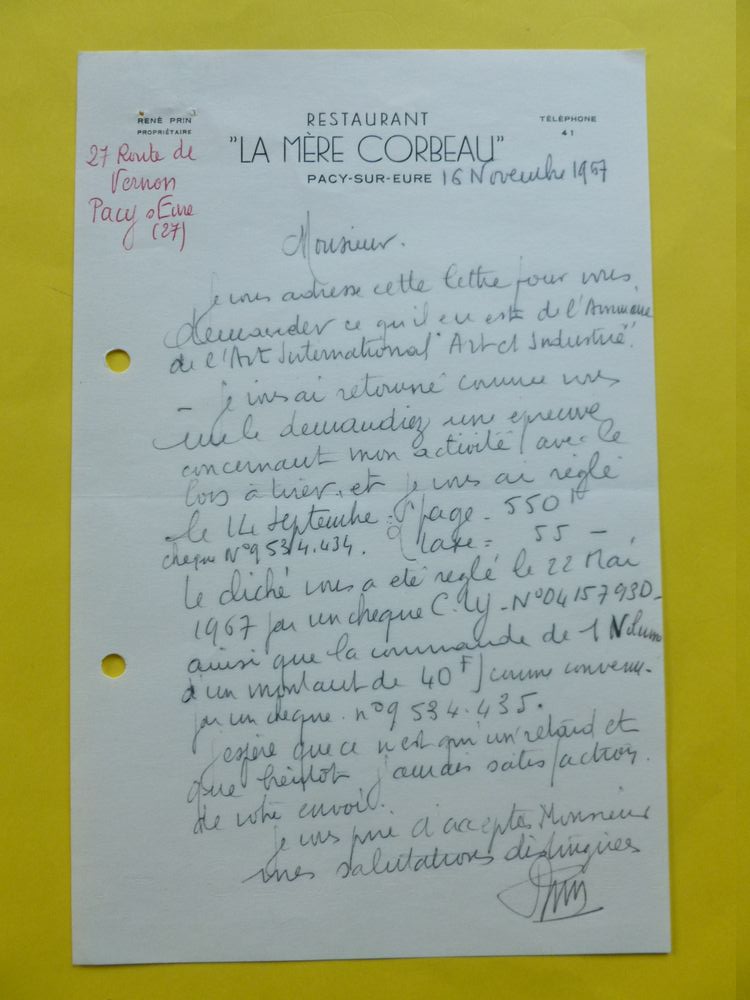 RENÉ PRIN
PROPRIÉTAIRE
RESTAURANT
"LA MÈRE CORBEAU"
PACY-SUR-EURE
TÉLÉPHONE
41
27 Route de
Vernon
Pacy s Eure
(27)
16 Novembre 1967
Monsieur.
Je vous adresse cette lettre pour vous
demander ce qu'il en est de l'Annuaire
de l'Art International "Art et Industrie".
— Je vous ai retourné comme vous
me le demandiez une épreuve
concernant mon activité, avec le
bon à tirer, et je vous ai réglé
le 14 Septembre page - 550 F
cheque N° 9 534.434. taxe = 55 —
Le cliché vous a été réglé le 22 Mai
1967 par un cheque N° 0415793D-
ainsi que la commande de 1
d'un montant de 40F comme convenu.
par un cheque n° 9 534.435.
J'espère que ce n'est qu'un retard et
que bientôt j'aurais satisfaction
de votre envoi.
Je vous prie d'accepter Monsieur
mes salutations distinguées
Prin